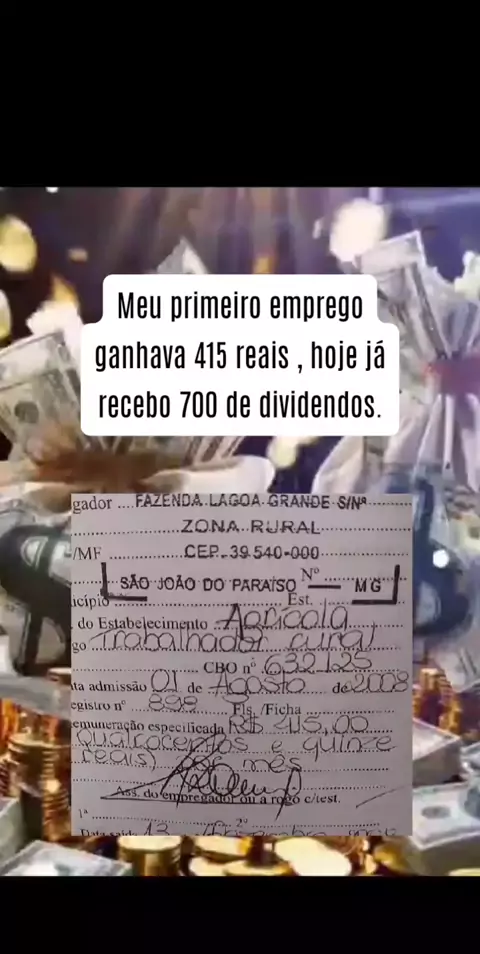 Meu primeiro emprego
ganhava 415 reais , hoje já
recebo 700 de dividendos.
gador FAZENDA LAGOA GRANDE S/Nº
ZONA RURAL
/MF CEP. 39.540-000
SÃO JOÃO DO PARAISO Nº — MG
icípio Est.
do Estabelecimento Agricola
go Trabalhador rural
CBO nº 632125
ta admissão 01 de Agosto de 2008
egistro nº 898 Fls. /Ficha
emuneração especificada R$ 415,00
quatrocentos e quinze
reais) por mês
Ass. do empregador ou a rogo c/test.
1ª 2ª
Data saída 13